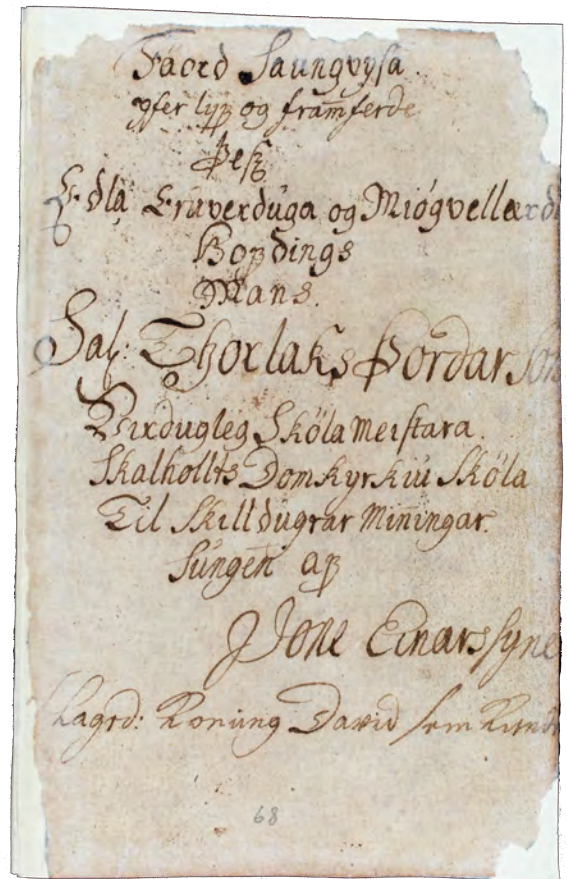 Fáord Saungvysa
yfer lyf og fram̄ferde
Þeß
Edla Eruverduga og Miógvellærd
Hofdings
Mans.
Sal: Thorlaks Þordarson
Virdugleg Skölameistara.
Skalhollts Domkyrkiu Sköla
Til Skilldugrar Min̄ingar.
Sungen̄ af
Jone Einarssyne
Lagrd: Konung David sem
68